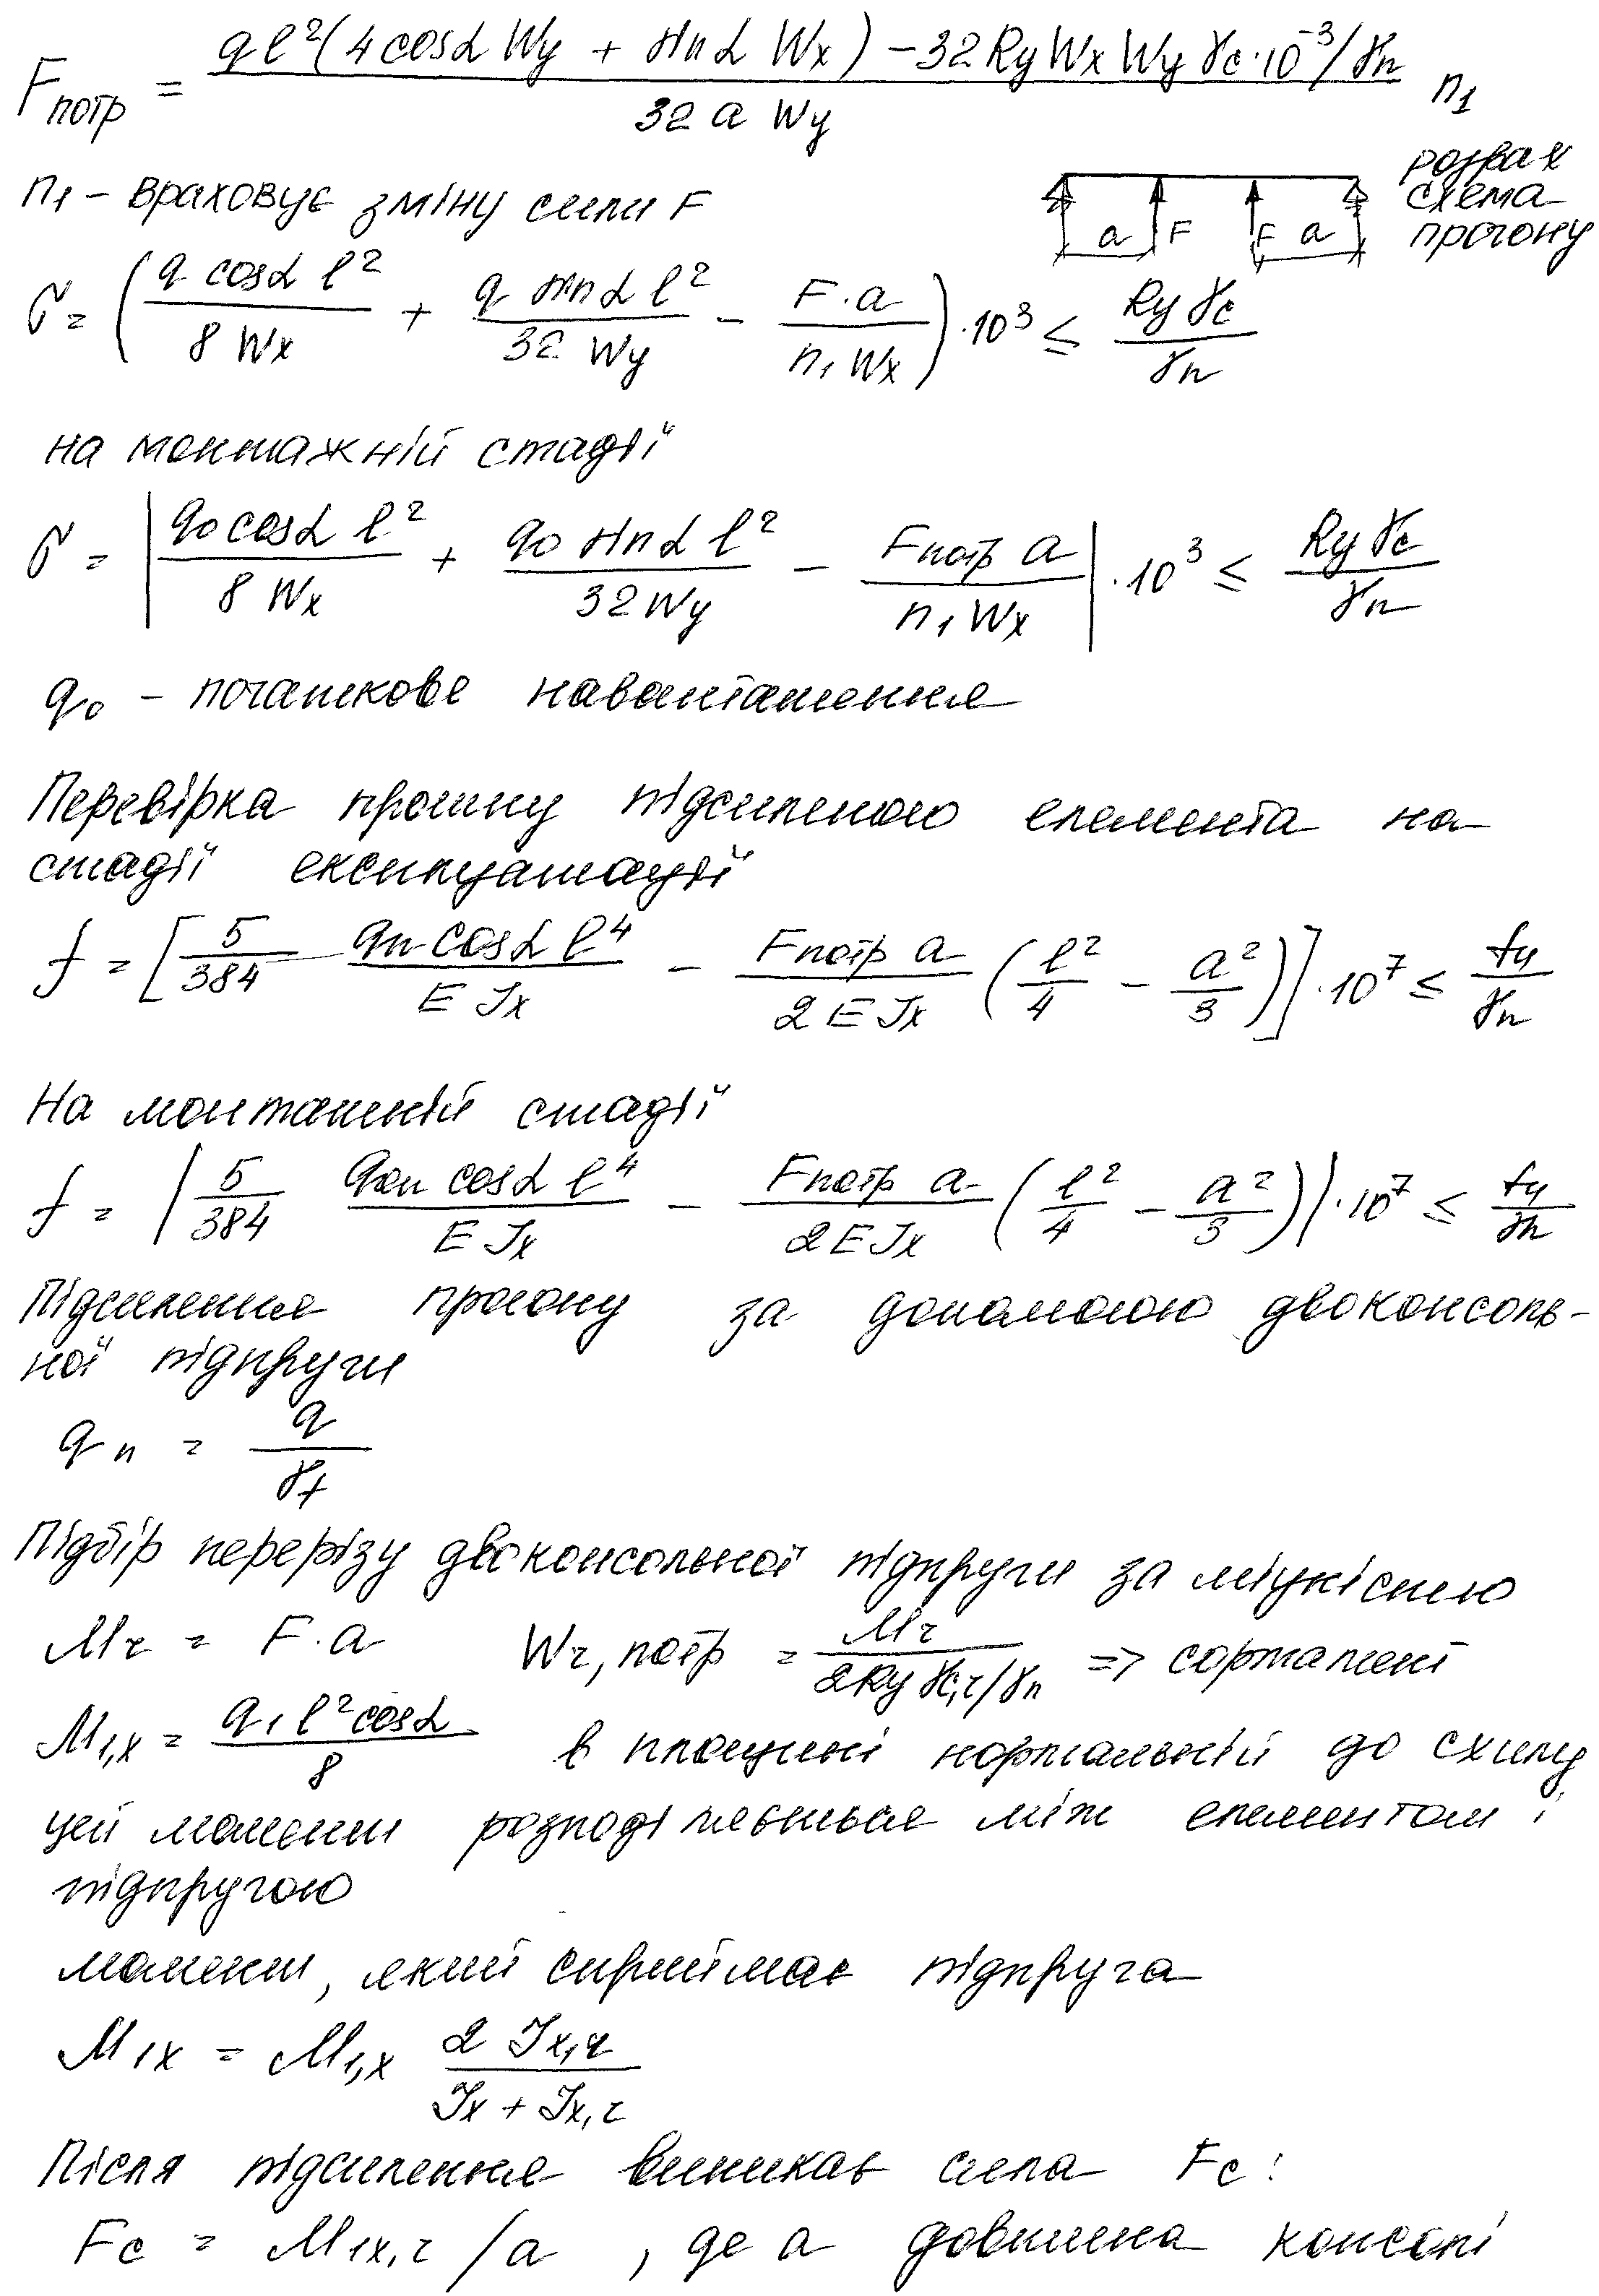 Fпотр = (ql²(4cosα Wy + sinα Wx) − 32RyWxWyγc·10⁻³/γn) / (32 a Wy) n₁
n₁ – враховує зміну сили F
розрах
схема
прогону
a F F a
σ = (q cosα l² / 8 Wx + q sinα l² / 32 Wy − F·a / n₁Wx)·10³ ≤ Ryγc / γn
на монтажній стадії
σ = |q₀cosα l² / 8 Wx + q₀ sinα l² / 32Wy − Fпотр a / n₁Wx|·10³ ≤ Ryγc / γn
q₀ – початкове навантаження
Перевірка прогину підсиленого елемента на
стадії експлуатації
f = [5/384 qn cosα l⁴ / E Jx − Fпотр a / 2EJx (l²/4 − a²/3)]·10⁷ ≤ fu / γn
На монтажній стадії
f = |5/384 q₀n cosα l⁴ / E Jx − Fпотр a / 2EJx (l²/4 − a²/3)|·10⁷ ≤ fu / γn
Підсилення прогону за допомогою двоконсоль-
ної підпруги
qn = q / γf
Підбір перерізу двоконсольної підпруги за міцністю
Mr = F·a Wr,потр = Mr / 2Ryγc,r/γn => сортамент
M₁,x = q₁l²cosα / 8 в площині нормальній до схилу
цей момент розподіляється між елементом і
підпругою
момент, який сприймає підпруга
M₁x = M₁,x 2 Jx,r / Jx + Jx,r
Після підсилення виникає сила Fc:
Fc = M₁x,r / a , де a довжина консолі